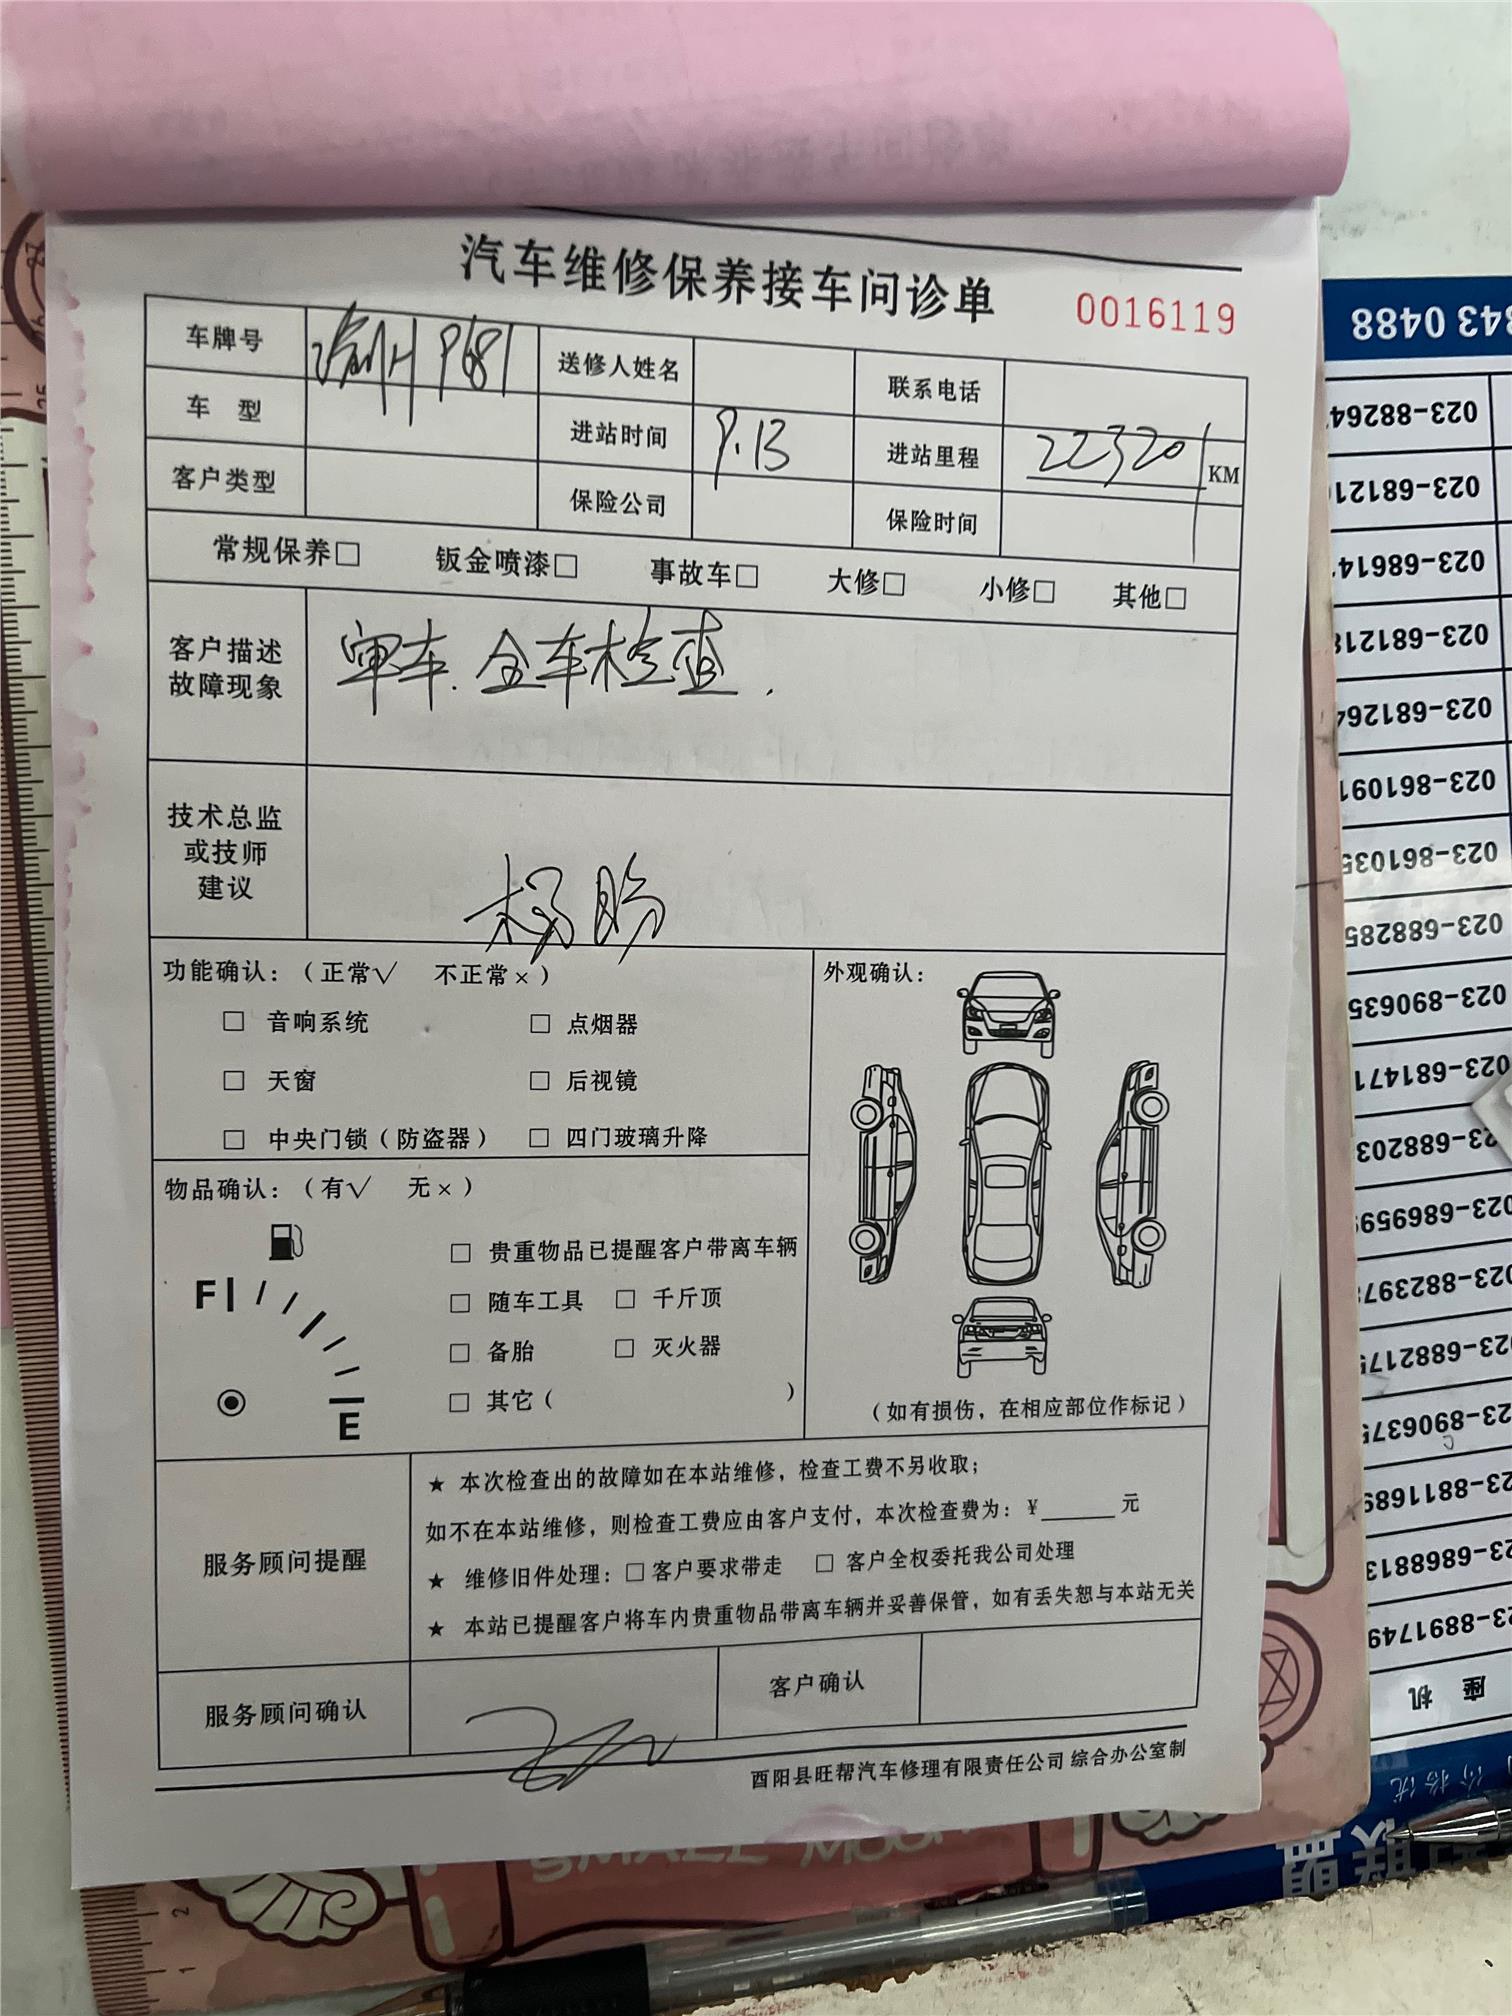 汽车维修保养接车问诊单
0016119
车牌号 送修人姓名 联系电话
车 型 进站时间 9.13 进站里程 22320 KM
客户类型 保险公司 保险时间
常规保养□ 钣金喷漆□ 事故车□ 大修□ 小修□ 其他□
客户描述
故障现象
审车.全车检查.
技术总监
或技师
建议
功能确认:(正常√ 不正常×)
□ 音响系统 □ 点烟器
□ 天窗 □ 后视镜
□ 中央门锁(防盗器) □ 四门玻璃升降
外观确认:
(如有损伤,在相应部位作标记)
物品确认:(有√ 无×)
F
E
□ 贵重物品已提醒客户带离车辆
□ 随车工具 □ 千斤顶
□ 备胎 □ 灭火器
□ 其它( )
服务顾问提醒
★ 本次检查出的故障如在本站维修,检查工费不另收取;
如不在本站维修,则检查工费应由客户支付,本次检查费为:¥______元
★ 维修旧件处理:□客户要求带走 □ 客户全权委托我公司处理
★ 本站已提醒客户将车内贵重物品带离车辆并妥善保管,如有丢失恕与本站无关
服务顾问确认 客户确认
酉阳县旺帮汽车修理有限责任公司 综合办公室制
343 0488
023-88264
023-68121
023-68614
023-68121
023-68126
023-86109
023-86103
023-68828
023-89063
023-68147
座 机
SMALL